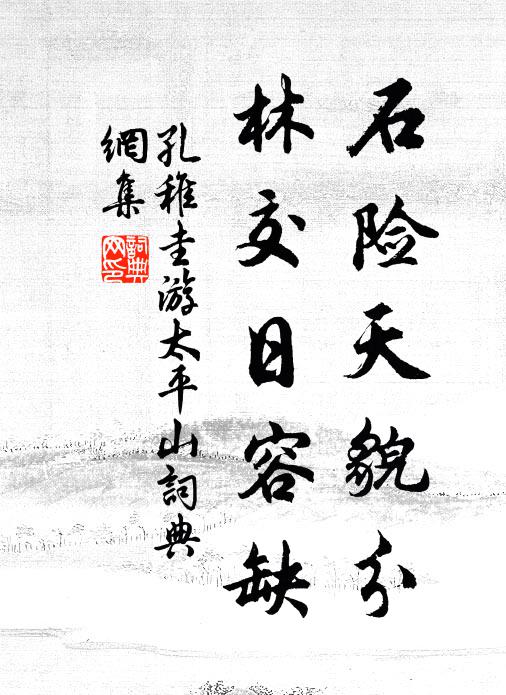 石险天貌分
林交日容缺
孔稚圭游太平山詞典
網集
詞典
网印